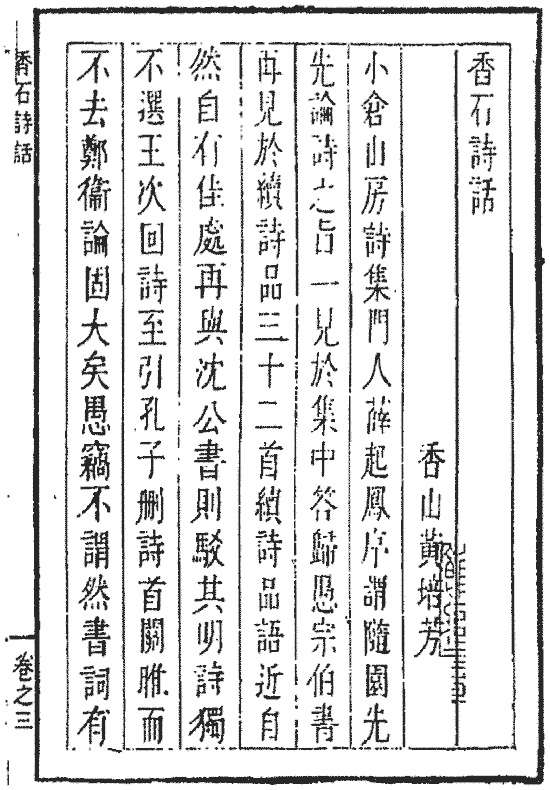 香石詩話
香山黃培芳
小倉山房詩集門人薛起鳳序謂隨園先
先論詩之旨一見於集中答歸愚宗伯書
再見於續詩品三十二首續詩品語近自
然自有佳處再與沈公書則駁其明詩獨
不選王次回詩至引孔子刪詩首關雎而
不去鄭衞論固大矣愚竊不謂然書詞有
香石詩話
卷之三